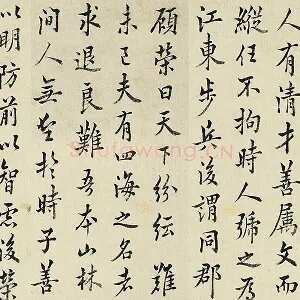 人有清才善屬文而
縱任不拘時人號之為
江東步兵後謂同郡
顧榮曰天紛紜難
未已夫有四海之名者
求退良難吾本山林
間人無望於時子善
以明防前以智慮後榮